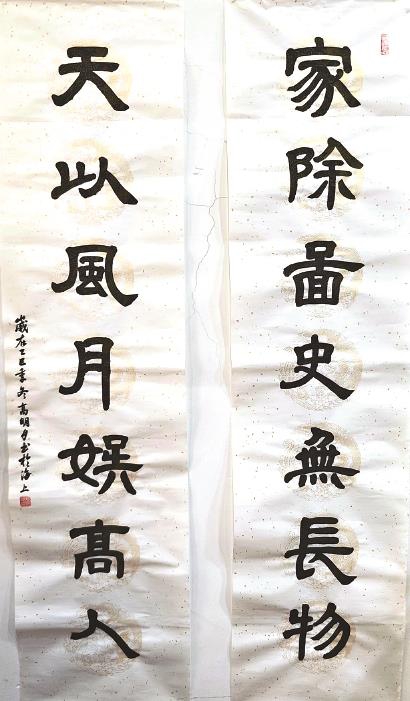 家除啚史無長物
天以風月娱高人
歲在乙巳季冬高明月書於海上